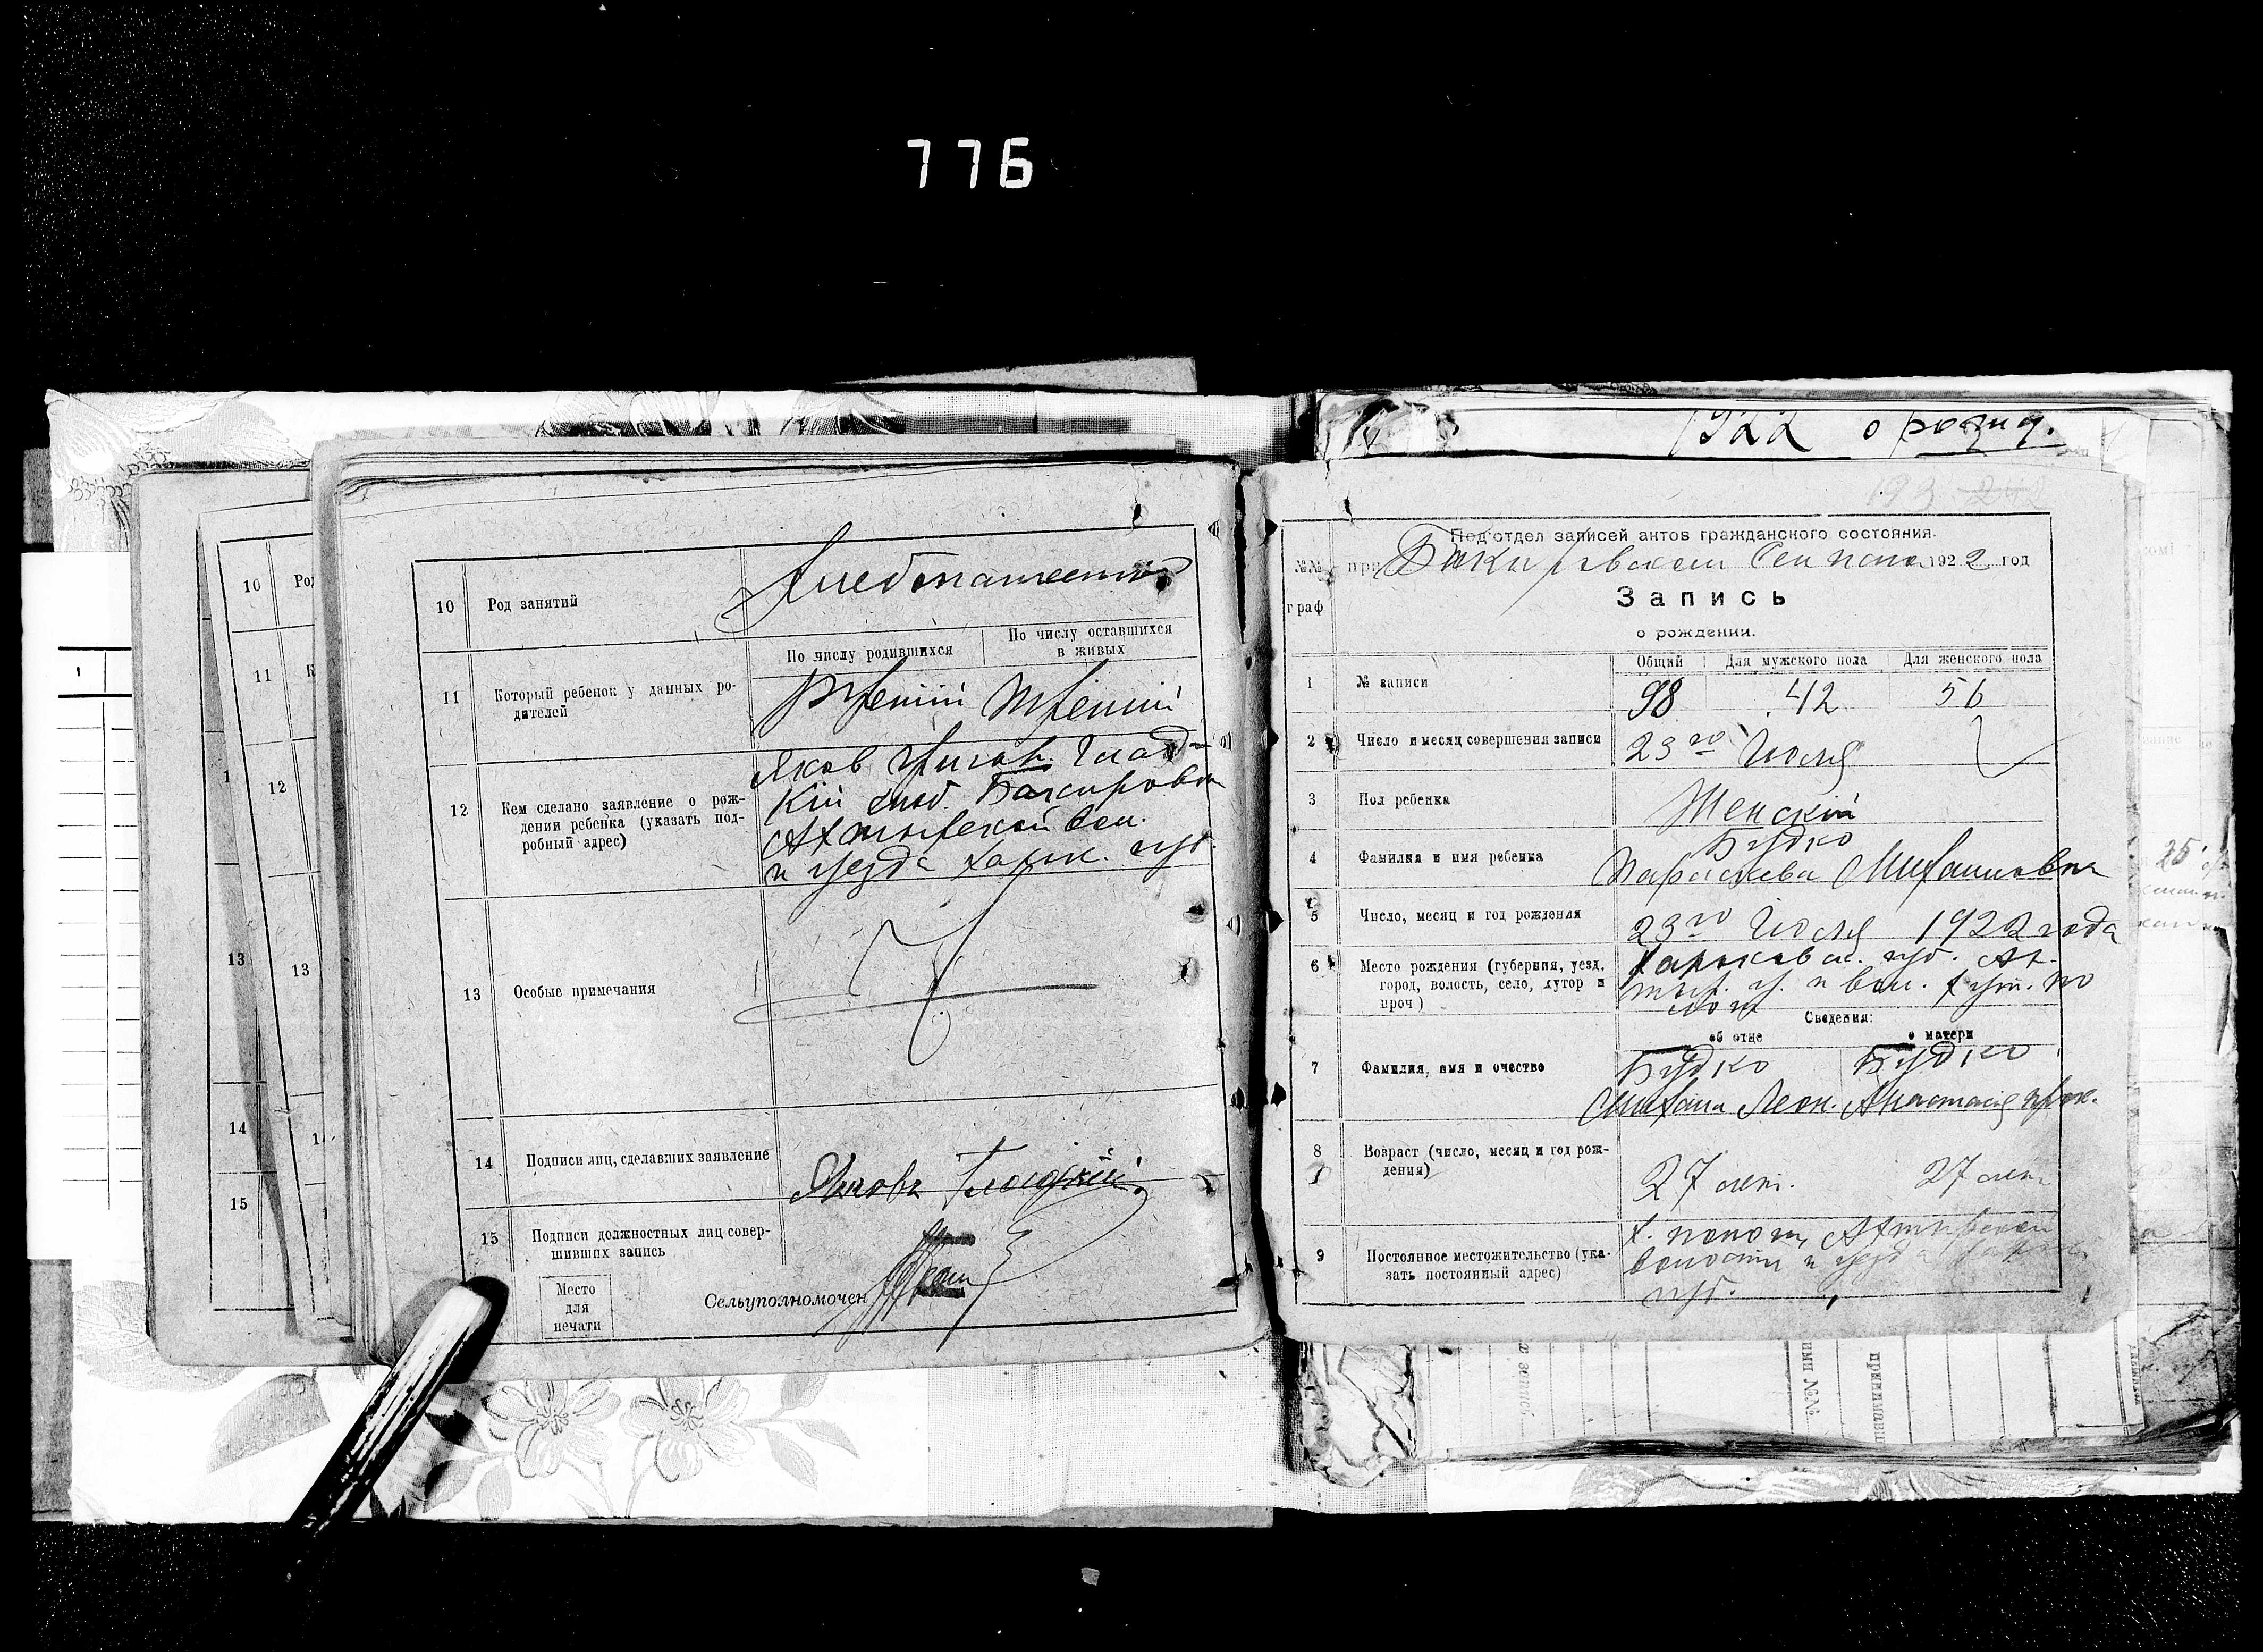 776
1922 о рожд.
10 Род занятий Хлебопашество
11 Который ребенок у данных ро-
дителей
По числу родившихся
По числу оставшихся
в живых
Третий Третий
12 Кем сделано заявление о рож-
дении ребенка (указать под-
робный адрес)
Яков Глад-
кий слоб. Бакировка
Ахтырской вол.
и уезда Харьк. губ.
13 Особые примечания
14 Подписи лиц, сделавших заявление
Яковъ Гладкий
15 Подписи должностных лиц совер-
шивших запись
Место
для
печати
Сельуполномочен
Под'отдел записей актов гражданского состояния
№№
граф
при Бакировском 1922 год
Запись
о рождении.
Общий Для мужского пола Для женского пола
1 № записи 98 42 56
2 Число и месяц совершения записи 23го Июля
3 Пол ребенка Женский
4 Фамилия и имя ребенка
Будко
Параскева Михайловна
5 Число, месяц и год рождения 23го Июля 1922 года
6 Место рождения (губерния, уезд,
город, волость, село, хутор и
проч)
Харьковск. губ. Ах-
тыр. у. и вол. хут. по
лот
Сведения:
об отце о матери
7 Фамилия, имя и очество
Будко Будко
Михаил Леон. Анастасия Прок.
8 Возраст (число, месяц и год рож-
дения)
27 лет. 27 лет
9 Постоянное местожительство (ука-
зать постоянный адрес)
х. полот, Ахтырской
волости и уезда
губ.
10
11
12
13
14
15